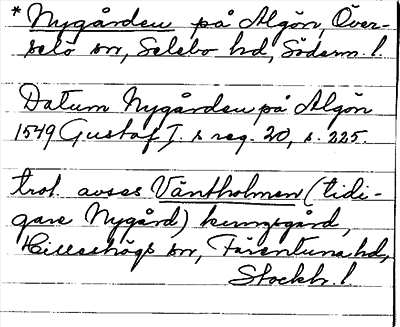 * Nygården på Algön, Över-
selö sn, Selebo hd, Söderm. l.
Datum Nygården på Algön
1549 Gustaf I. s reg. 20, s. 225.
trol. avses Väntholmen (tidi-
gare Nygård) kungsgård,
Hilleshögs sn, Färentuna hd,
Stockh. l.